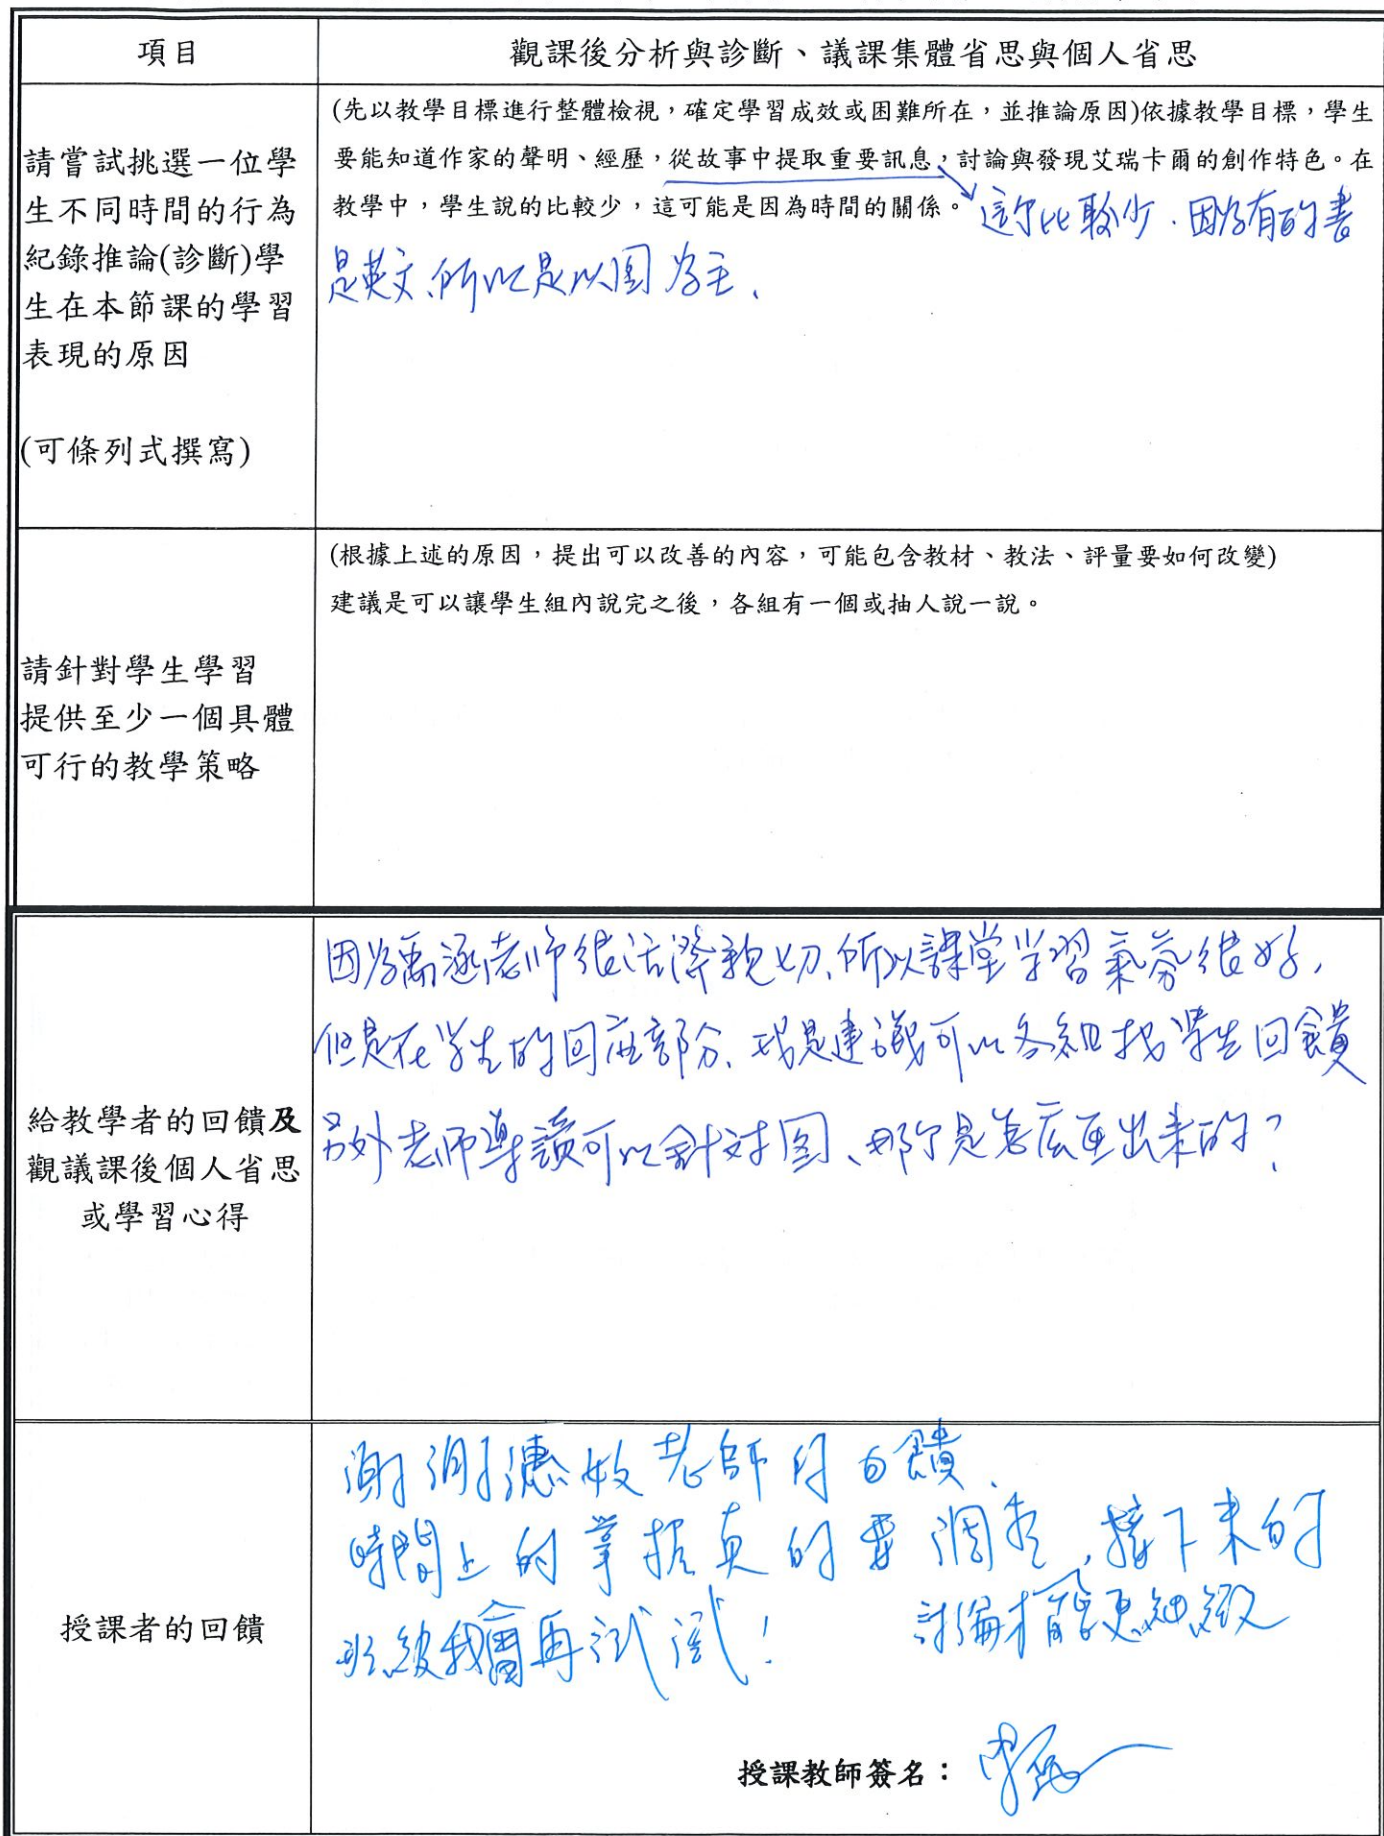 項目
觀課後分析與診斷、議課集體省思與個人省思
請嘗試挑選一位學
生不同時間的行為
紀錄推論(診斷)學
生在本節課的學習
表現的原因
(可條列式撰寫)
(先以教學目標進行整體檢視，確定學習成效或困難所在，並推論原因)依據教學目標，學生
要能知道作家的聲明、經歷，從故事中提取重要訊息，討論與發現艾瑞卡爾的創作特色。在
教學中，學生說的比較少，這可能是因為時間的關係。
這部比較少．因為有的書
是英文、所以是以圖為主、
請針對學生學習
提供至少一個具體
可行的教學策略
(根據上述的原因，提出可以改善的內容，可能包含教材、教法、評量要如何改變)
建議是可以讓學生組內說完之後，各組有一個或抽人說一說。
給教學者的回饋及
觀議課後個人省思
或學習心得
因為禹涵老师很活潑親切、所以課堂学習氣氛很好，
但是在学生的回應部分、我是建議可以各組找學生回饋
另外老师導讀可以針对圖、那个是怎麼画出來的？
授課者的回饋
謝謝惠敏老師的回饋、
時間上的掌握真的要調整，接下來的
班級我會再試試！
討論才能更細緻
授課教師簽名：